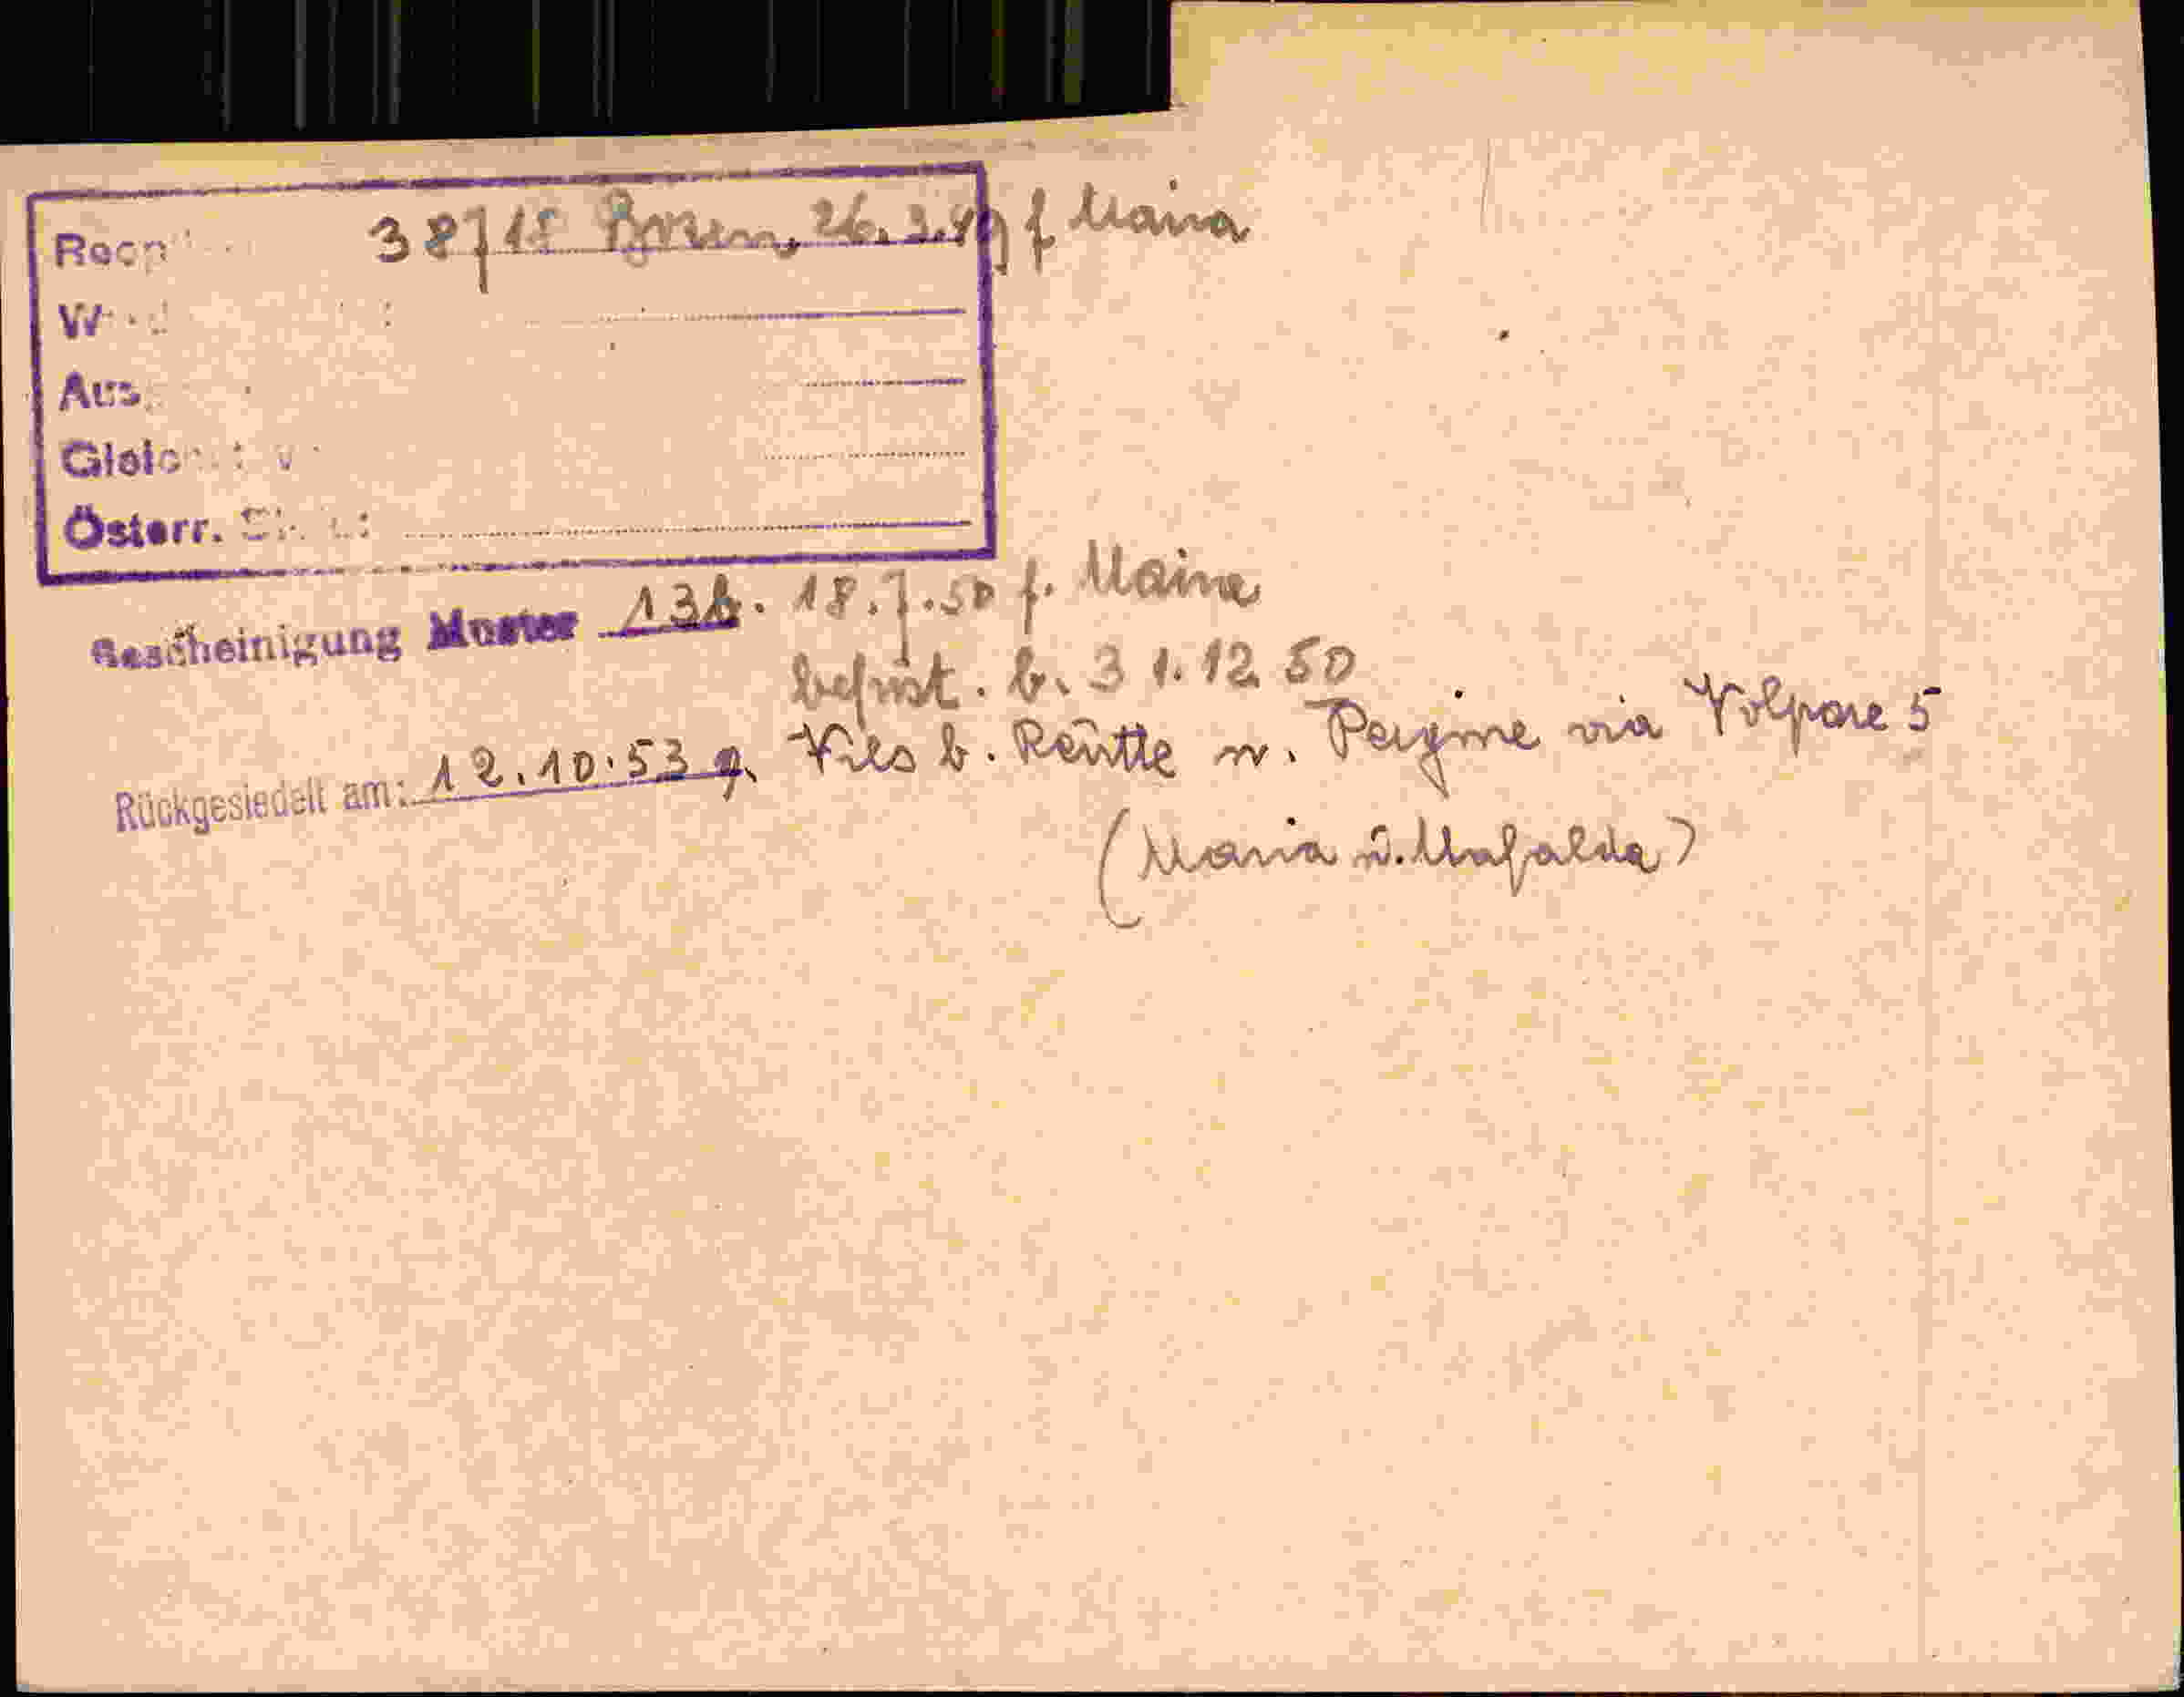 38715 Bozen, 26.3.49 f Maria
Österr.
Bescheinigung Muster 13b. 18.7.50 f. Maria
befrist. b. 31.12.50
Rückgesiedelt am: 12.10.53 v. Vils b. Reutte n. Pergine via Volpare 5
(Maria u. Mafalda)